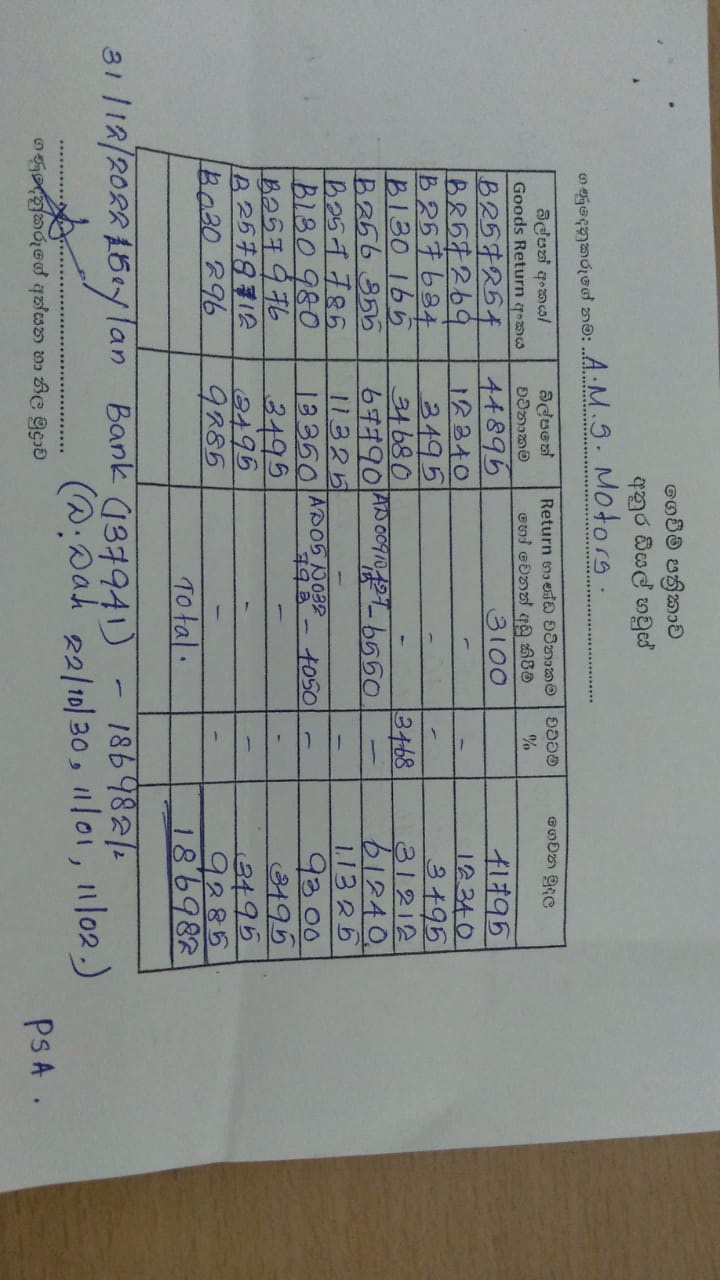 ගෙවීම් පත්‍රිකාව
අනුර ඩීසල් හවුස්
ගණුදෙනුකරුගේ නම: A.M.S. Motors.
බිල්පත් අංකය/ Goods Return අංකය බිල්පතේ වටිනාකම Return භාණ්ඩ වටිනාකම හෝ වෙනත් අඩු කිරීම් වට්ටම් % ගෙවන මුදල
B257254 44895 3100 41795
B257269 12340 - - 12340
B257634 3495 - - 3495
B130165 34680 - 3468 31212
B256355 67790 - 6550 - 61240
B257785 11325 - - 11325
B130980 13350 - 4050 - 9300
B257976 3495 - - 3495
B2578712 3495 - - 3495
B030296 9285 - - 9285
Total. 186982
31/12/2022 Seylan Bank (137941) - 186982/-
22/10/30, 11/01, 11/02.)
ගණුදෙනුකරුගේ අත්සන හා නිල මුද්‍රාව
PSA.